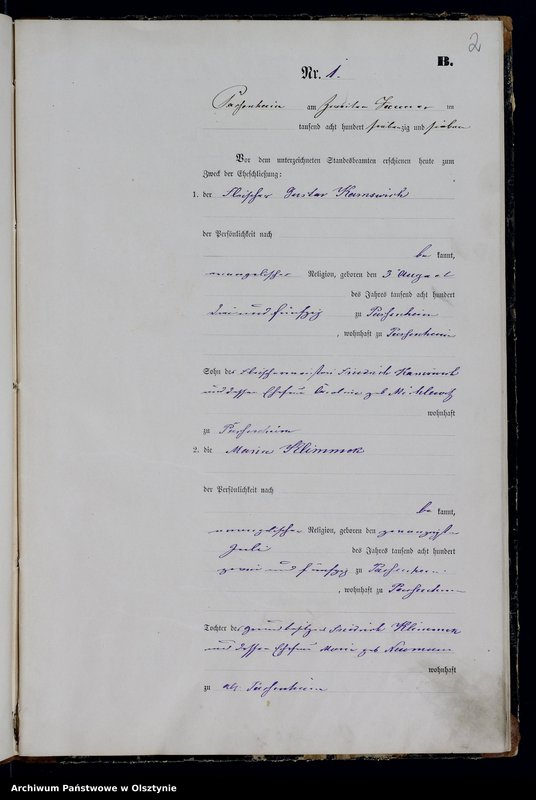 2
B.
Nr. 1.
Passenheim am zweiten Januar ein
tausend acht hundert siebenzig und sieben
Vor dem unterzeichneten Standesbeamten erschienen heute zum
Zweck der Eheschließung:
1. der Fleischer Gustav
der Persönlichkeit nach
be kannt,
evangelischer Religion, geboren den 3 August
des Jahres tausend acht hundert
drei und fünfzig zu Passenheim
, wohnhaft zu Passenheim
Sohn des Fleischermeisters Friedrich
und dessen Ehefrau Caroline geb
wohnhaft
zu Passenheim
2. die Marie Klimmek
der Persönlichkeit nach
be kannt,
evangelischer Religion, geboren den
Juli des Jahres tausend acht hundert
zwei und fünfzig zu Passenheim
, wohnhaft zu Passenheim
Tochter des Grundbesitzers Friedrich Klimmek
und dessen Ehefrau Marie geb Neumann
wohnhaft
zu Passenheim
Archiwum Państwowe w Olsztynie